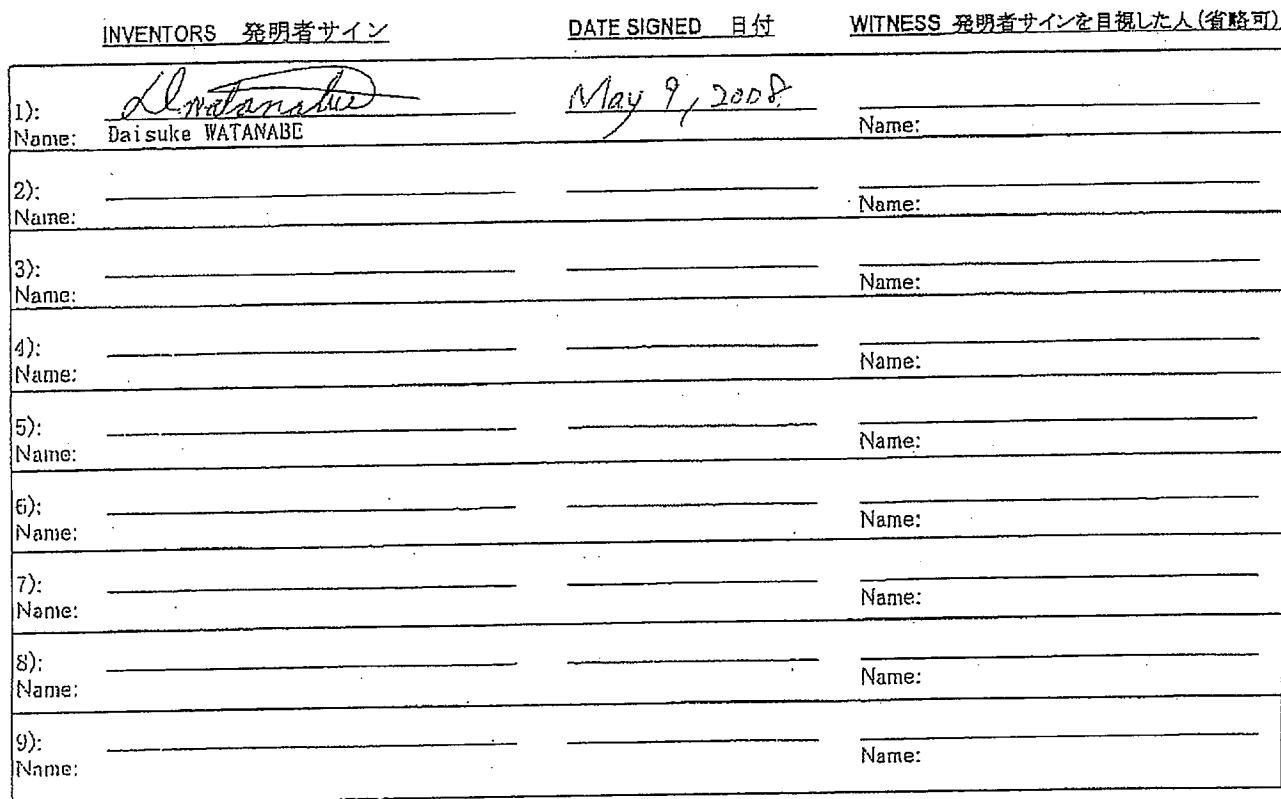 INVENTORS 発明者サイン DATE SIGNED 日付 WITNESS 発明者サインを目視した人(省略可)
1): D Watanabe May 9, 2008
Name: Daisuke WATANABE Name:
2):
Name: Name:
3):
Name: Name:
4):
Name: Name:
5):
Name: Name:
6):
Name: Name:
7):
Name: Name:
8):
Name: Name:
9):
Name: Name: